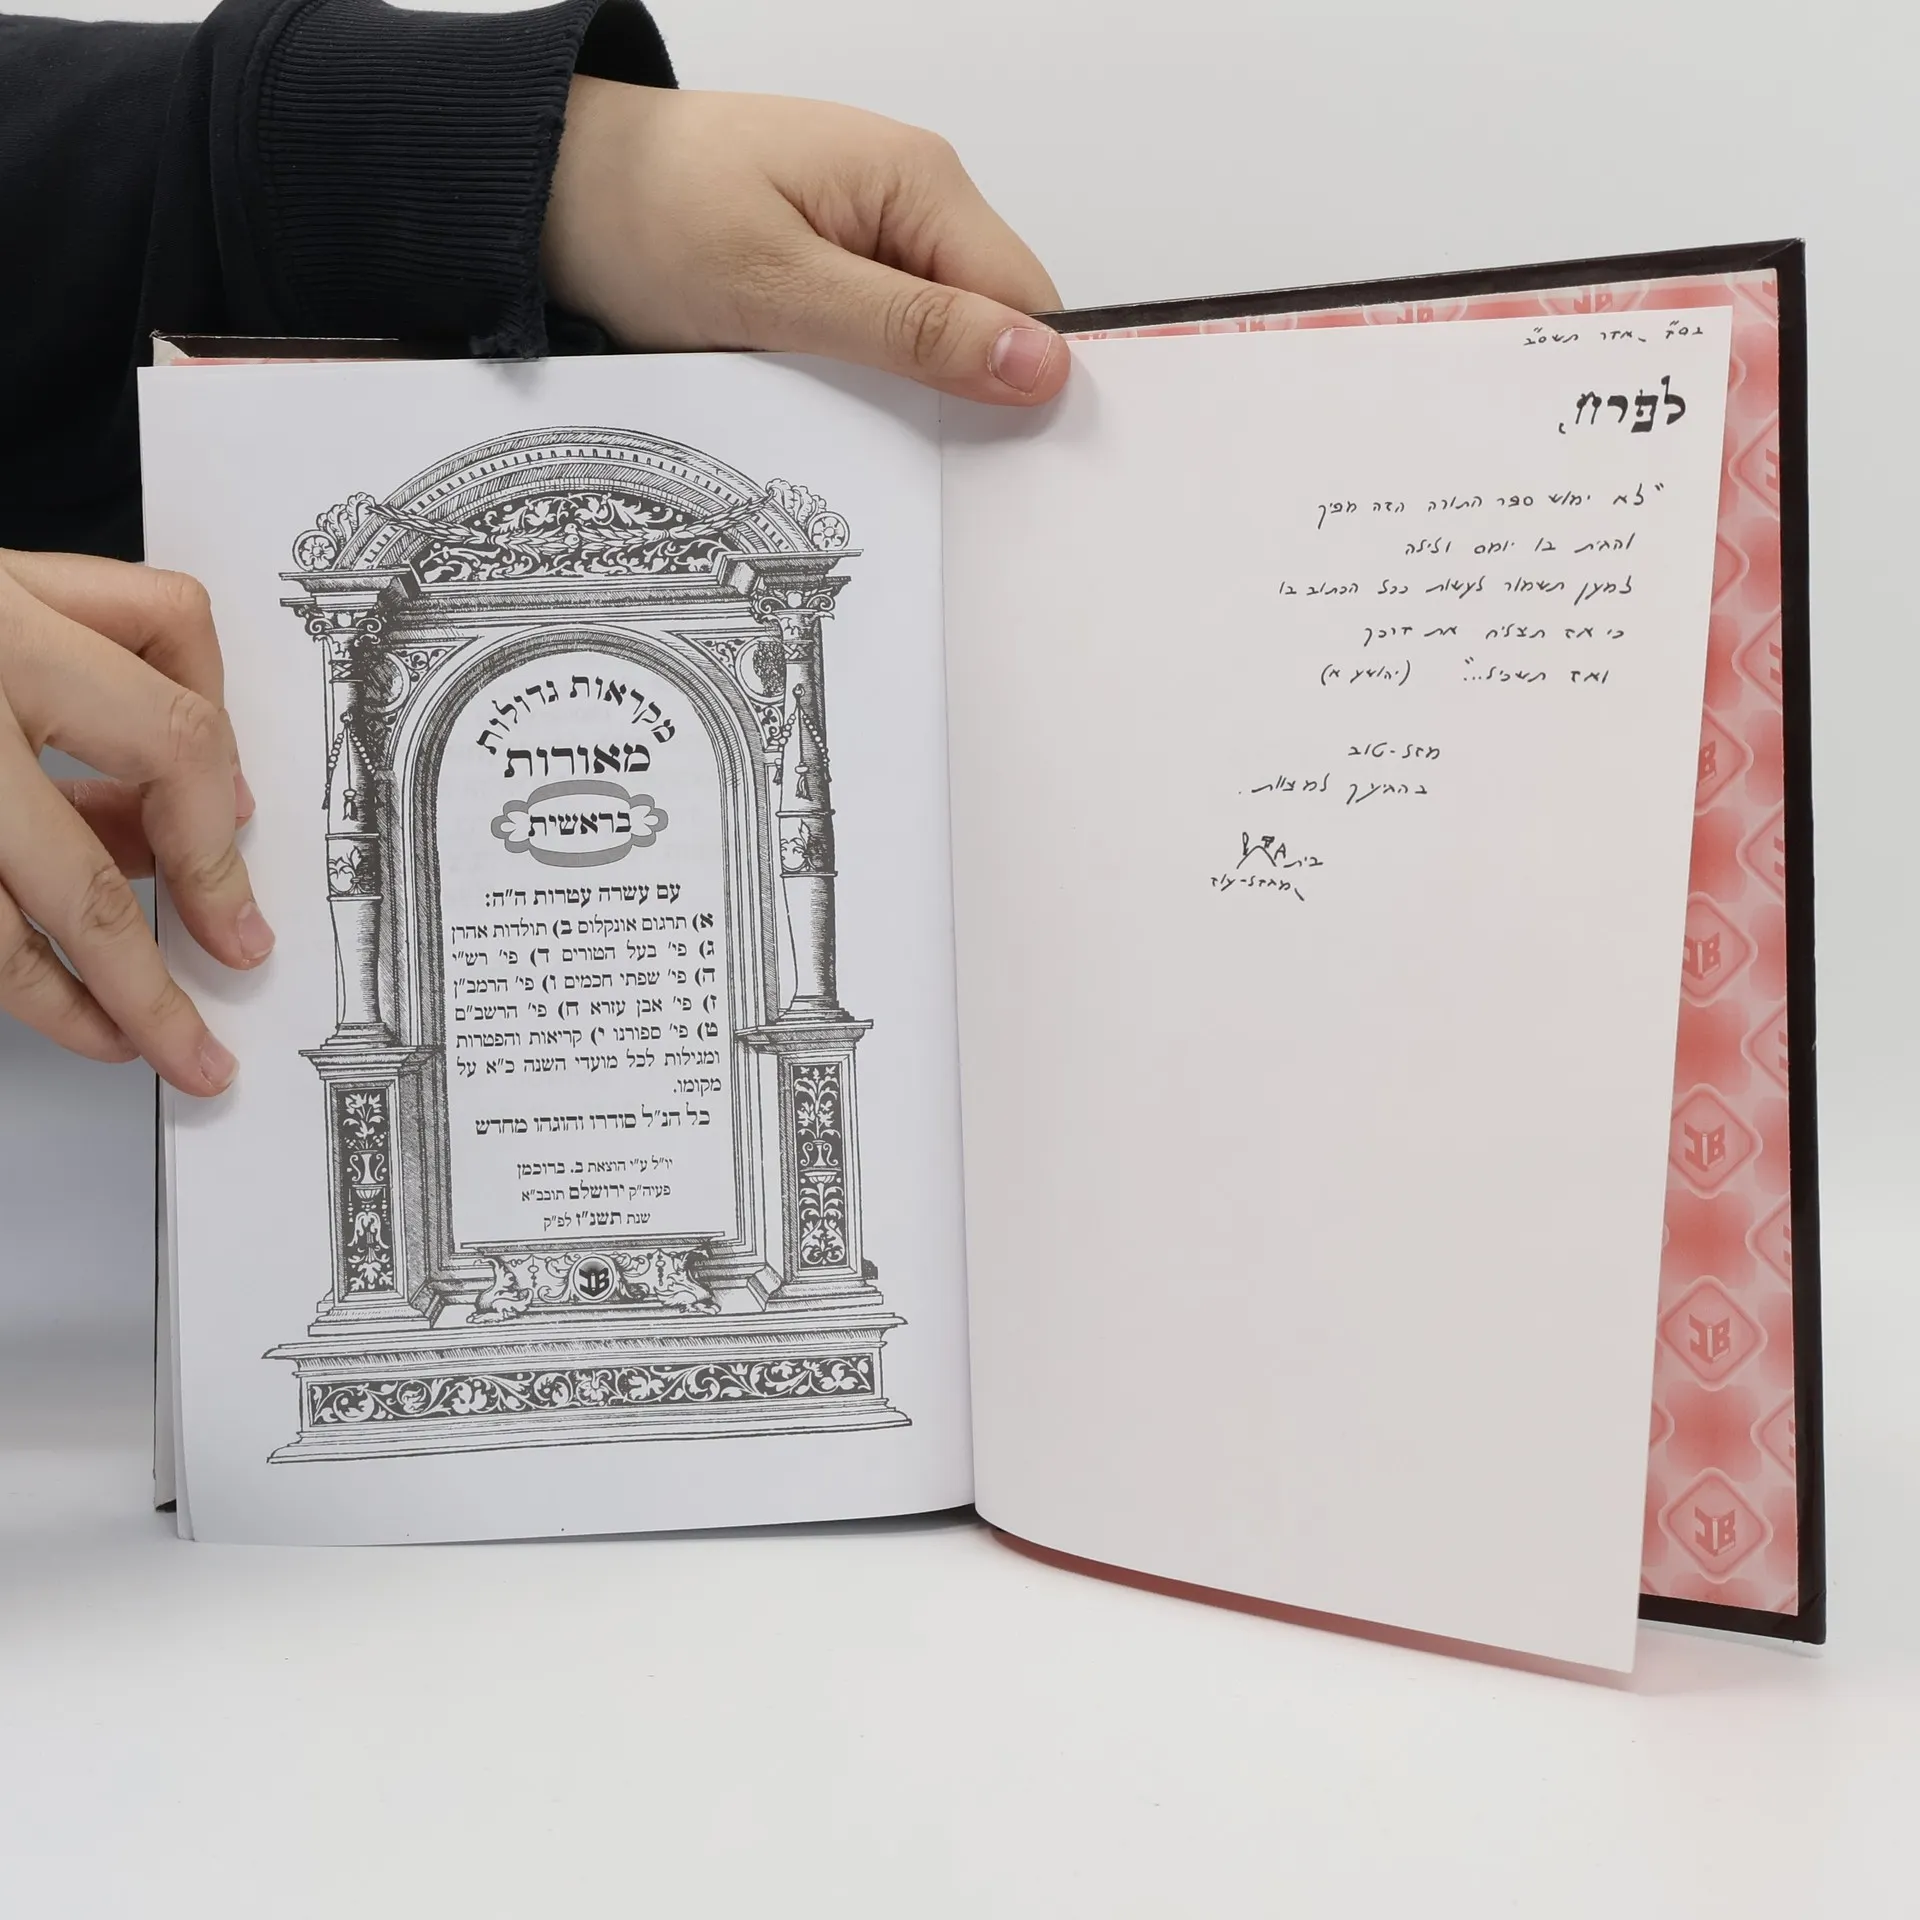 בס"ד, אדר תשס"ב
לפרח,
"לא ימוש ספר התורה הזה מפיך
והגית בו יומם ולילה
למען תשמור לעשות ככל הכתוב בו
כי אז תצליח את דרכך
ואז תשכיל..." (יהושע א)
מזל-טוב
בהגיעך למצוות.
בית
מגדל-עוז
מקראות גדולות
מאורות
בראשית
עם עשרה עטרות ה"ה:
א) תרגום אונקלוס ב) תולדות אהרן
ג) פי' בעל הטורים ד) פי' רש"י
ה) פי' שפתי חכמים ו) פי' הרמב"ן
ז) פי' אבן עזרא ח) פי' הרשב"ם
ט) פי' ספורנו י) קריאות והפטרות
ומגילות לכל מועדי השנה כ"א על
מקומו.
כל הנ"ל סודרו והוגהו מחדש
יו"ל ע"י הוצאת ב. ברוכמן
פעיה"ק ירושלם תובב"א
שנת תשנ"ז לפ"ק
JB